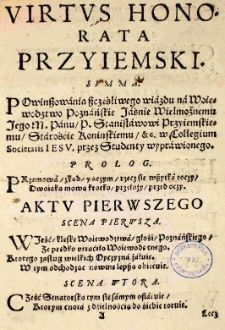 VIRTVS HONO-
RATA
PRZYIEMSKI.
SVMMA.
POwinßowania ßczęśliwego wiázdu ná Woie-
wodztwo Poznáńskie Jáśnie Wielmożnemu
Jego M. Pánu/ P. Stánisłáwowi Przyiemskie-
mu/ Stárośćie Konińskiemu/ &c. w Collegium
Societatis IESV. przez Studenty wypráwionego.
PROLOG.
PRzemowá/ zkąd/ y o czym/ rzecz się wßytká toczy/
Dwoiáko mową krotko/ przełoży/ przed oczy.
AKTV PIERWSZEGO
SCENA PIERWSZA.
WJeść/ Woiewodztwá/ głośi/ Poznáńskiego/
Ze prędko Woiewodę inego.
Ktorego zasług wielkich Oyczyzná záżyie:
W tym odchodzące nowiną lepßą obiecuie.
SCENA WTORA.
CZęść Senatorska tym się sámym
Ktorym cnotá z dzielnośćią do śiebie
A
Lecz